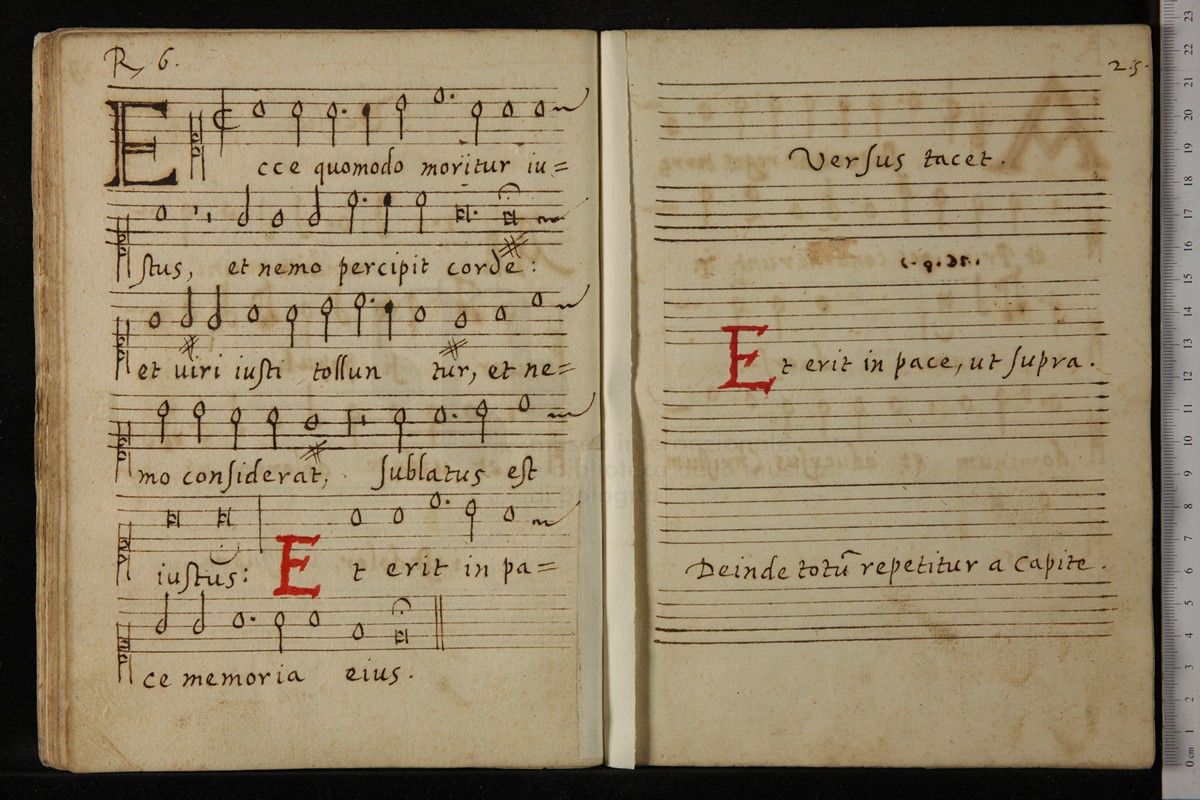 R, 6.
Ecce quomodo moritur iu=
ſtus, et nemo percipit corde:
et viri iuſti tollun tur, et ne=
mo conſiderat, ſublatus eſt
iuſtus: Et erit in pa=
ce memoria eius.
25.
Verſus tacet.
Et erit in pace, ut ſupra.
Deinde totū repetitur a Capite.